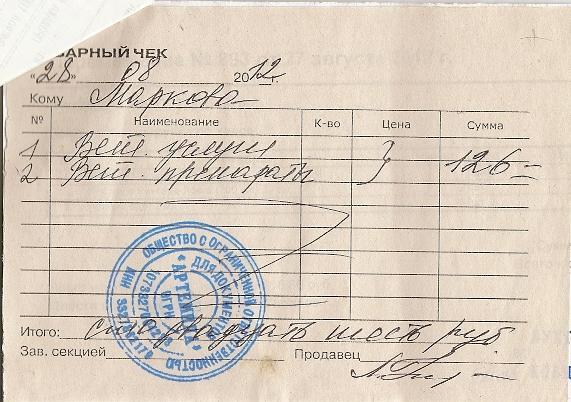 ВАРНЫЙ ЧЕК
«28» 08 2012 г.
Кому Маркова
№ Наименование К-во Цена Сумма
1 Вет. услуги
2 Вет. препараты } 126=
ОБЩЕСТВО С ОГРАНИЧЕННОЙ ОТВЕТСТВЕННОСТЬЮ
ДЛЯ ДОКУМЕНТОВ
Итого: сто двадцать шесть руб
Зав. секцией Продавец